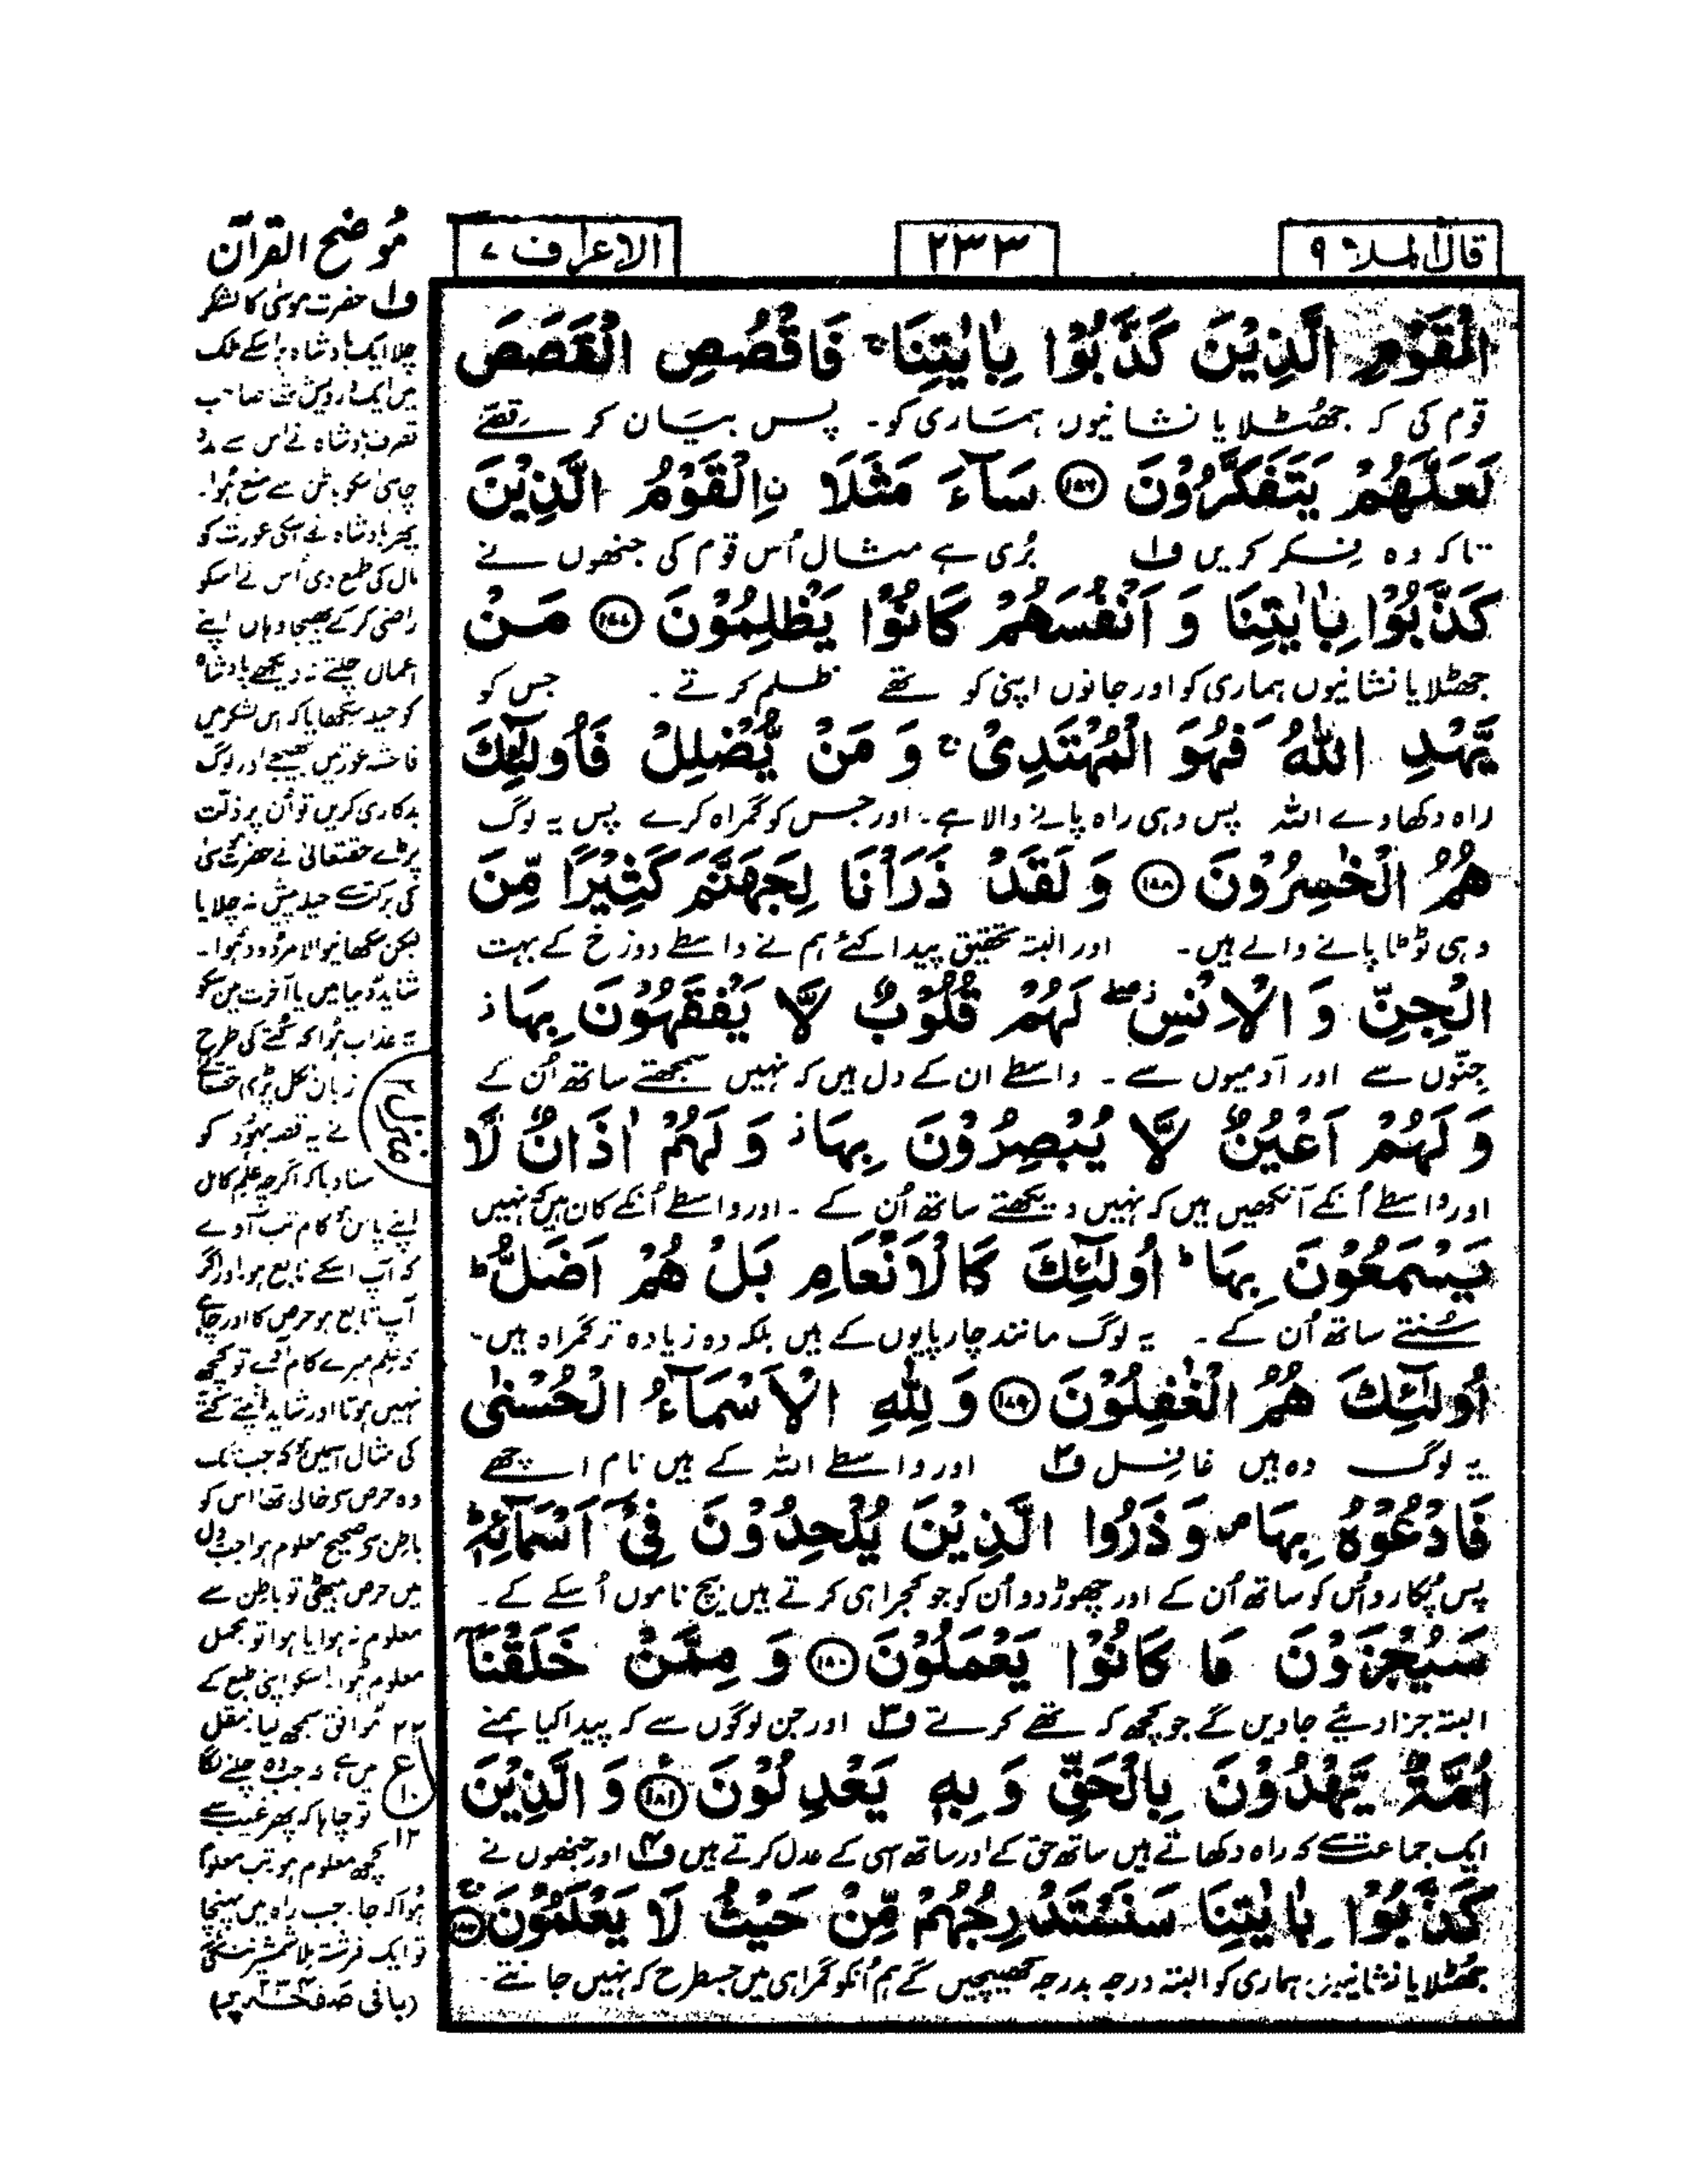 قال الملا ۹
۲۳۳
الاعراف ۷
الْقَوْمِ الَّذِیْنَ كَذَّبُوْا بِاٰیٰتِنَا ۚ فَاقْصُصِ الْقَصَصَ
قوم کی کہ جھٹلایا نشانیوں ہماری کو۔ پس بیان کر قصّے
لَعَلَّهُمْ یَتَفَكَّرُوْنَ ﴿۱۷۶﴾ سَآءَ مَثَلَا نِالْقَوْمُ الَّذِیْنَ
تاکہ وہ فکر کریں ف۱ بُری ہے مثال اُس قوم کی جنھوں نے
كَذَّبُوْا بِاٰیٰتِنَا وَ اَنْفُسَهُمْ كَانُوْا یَظْلِمُوْنَ ﴿۱۷۷﴾ مَنْ
جھٹلایا نشانیوں ہماری کو اور جانوں اپنی کو تھے ظلم کرتے۔ جس کو
یَّهْدِ اللّٰهُ فَهُوَ الْمُهْتَدِیْ ۚ وَ مَنْ یُّضْلِلْ فَاُولٰٓئِكَ
راہ دکھاوے اللہ پس وہی راہ پانے والا ہے۔ اور جس کو گمراہ کرے پس یہ لوگ
هُمُ الْخٰسِرُوْنَ ﴿۱۷۸﴾ وَ لَقَدْ ذَرَاْنَا لِجَهَنَّمَ كَثِیْرًا مِّنَ
وہی ٹوٹا پانے والے ہیں۔ اور البتہ تحقیق پیدا کئے ہم نے واسطے دوزخ کے بہت
الْجِنِّ وَ الْاِنْسِ ۖ لَهُمْ قُلُوْبٌ لَّا یَفْقَهُوْنَ بِهَا ۫
جنّوں سے اور آدمیوں سے۔ واسطے ان کے دل ہیں کہ نہیں سمجھتے ساتھ اُن کے
وَ لَهُمْ اَعْیُنٌ لَّا یُبْصِرُوْنَ بِهَا ۫ وَ لَهُمْ اٰذَانٌ لَّا
اور واسطے اُنکے آنکھیں ہیں کہ نہیں دیکھتے ساتھ اُن کے۔ اور واسطے اُنکے کان ہیں کہ نہیں
یَسْمَعُوْنَ بِهَا ؕ اُولٰٓئِكَ كَالْاَنْعَامِ بَلْ هُمْ اَضَلُّ ؕ
سُنتے ساتھ اُن کے۔ یہ لوگ مانند چارپایوں کے ہیں بلکہ وہ زیادہ تر گمراہ ہیں۔
اُولٰٓئِكَ هُمُ الْغٰفِلُوْنَ ﴿۱۷۹﴾ وَ لِلّٰهِ الْاَسْمَآءُ الْحُسْنٰی
یہ لوگ وہ ہیں غافل ف۲ اور واسطے اللہ کے ہیں نام اچھے
فَادْعُوْهُ بِهَا ۪ وَ ذَرُوا الَّذِیْنَ یُلْحِدُوْنَ فِیْۤ اَسْمَآئِهٖ ؕ
پس پکارو اُس کو ساتھ اُن کے اور چھوڑ دو اُن کو جو کجراہی کرتے ہیں بیچ ناموں اُسکے کے۔
سَیُجْزَوْنَ مَا كَانُوْا یَعْمَلُوْنَ ﴿۱۸۰﴾ وَ مِمَّنْ خَلَقْنَاۤ
البتہ جزا دیئے جاویں گے جو کچھ کہ تھے کرتے ف۳ اور جن لوگوں سے کہ پیدا کیا ہمنے
اُمَّةٌ یَّهْدُوْنَ بِالْحَقِّ وَ بِهٖ یَعْدِلُوْنَ ﴿۱۸۱﴾ وَ الَّذِیْنَ
ایک جماعت ہے کہ راہ دکھاتے ہیں ساتھ حق کے اور ساتھ اسی کے عدل کرتے ہیں ف۴ اور جنھوں نے
كَذَّبُوْا بِاٰیٰتِنَا سَنَسْتَدْرِجُهُمْ مِّنْ حَیْثُ لَا یَعْلَمُوْنَ ﴿۱۸۲﴾
جھٹلایا نشانیوں ہماری کو البتہ درجہ بدرجہ کھینچیں گے ہم اُنکو گمراہی میں جسطرح کہ نہیں جانتے۔
مُوضح القرآن
ف۱ حضرت موسیٰ کا لشکر
چلا ایک بادشاہ پر اسکے ملک
میں ایک درویش تھا صاحب
تصرف بادشاہ نے اس سے مدد
چاہی اسکو باطن سے منع ہُوا۔
پھر بادشاہ نے اسکی عورت کو
مال کی طمع دی اُس نے اسکو
راضی کرکے بھیجا وہاں اپنے
اعمال چلتے نہ دیکھے بادشاہ
کو حیلہ سکھایا کہ اس لشکر میں
فاحشہ عورتیں بھیجے اور لوگ
بدکاری کریں تو اُن پر ذلّت
پڑے حقتعالیٰ نے حضرت موسیٰ کی
کی برکت سے حیلہ پیش نہ چلایا
لیکن سکھانیوالا مردود ہُوا۔
شاید دُنیا میں یا آخرت میں اسکو
یہ عذاب ہُوا کہ کُتّے کی طرح
زبان نکل پڑی حقتعالیٰ
نے یہ قصہ یہود کو
سنادیا کہ اگرچہ علم کامل
اپنے پاس ہو کام تب آوے
کہ آپ اسکے تابع ہو اور اگر
آپ تابع ہو حرص کا اور چاہے
کہ علم میرے کام آئے تو کچھ
نہیں ہوتا اور شاید اپنے کتّے
کی مثال اسمیں کہ جب تک
وہ حرص سے خالی تھا اس کو
باطن سے صحیح معلوم ہوا جب دل
میں حرص بیٹھی تو باطن سے
معلوم نہ ہوا یا ہوا تو مجمل
معلوم ہُوا اسکو اپنی طبع کے
موافق سمجھ لیا نقل
میں ہے کہ جب وہ چلنے لگا
تو چاہا کہ پھر غیب سے
کچھ معلوم ہو تب معلوم
ہُوا کہ جا۔ جب راہ میں پہنچا
تو ایک فرشتہ ملا شمشیر ننگی
(باقی صفحہ ۲۳۴ پر)
منزل ۲
۲۲
ع
۱۰
۱۲